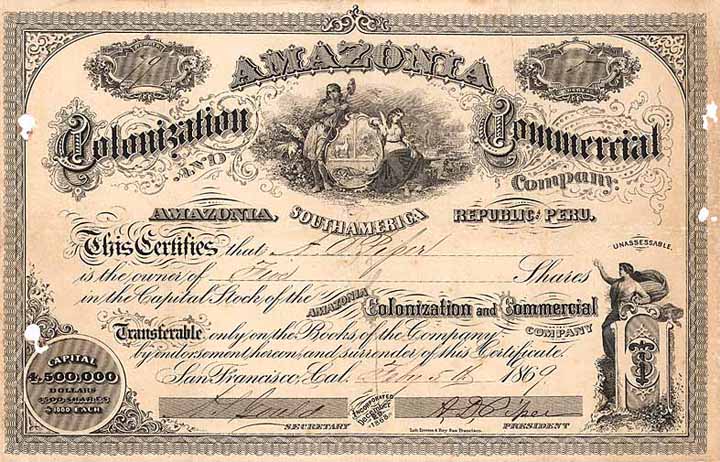 AMAZONIA
Colonization
AND
Commercial
Company.
AMAZONIA, SOUTH AMERICA REPUBLIC OF PERU.
This Certifies that A. D. Piper
UNASSESSABLE.
is the owner of Five Shares
in the Capital Stock of the AMAZONIA Colonization and Commercial COMPANY
Transferable only on the Books of the Company
by endorsement hereon, and surrender of this Certificate.
San Francisco, Cal. Feb 5th 1869
CAPITAL
4,500,000
DOLLARS
4500 SHARES
$1000 EACH
INCORPORATED
December
1868
A D Piper
SECRETARY
PRESIDENT